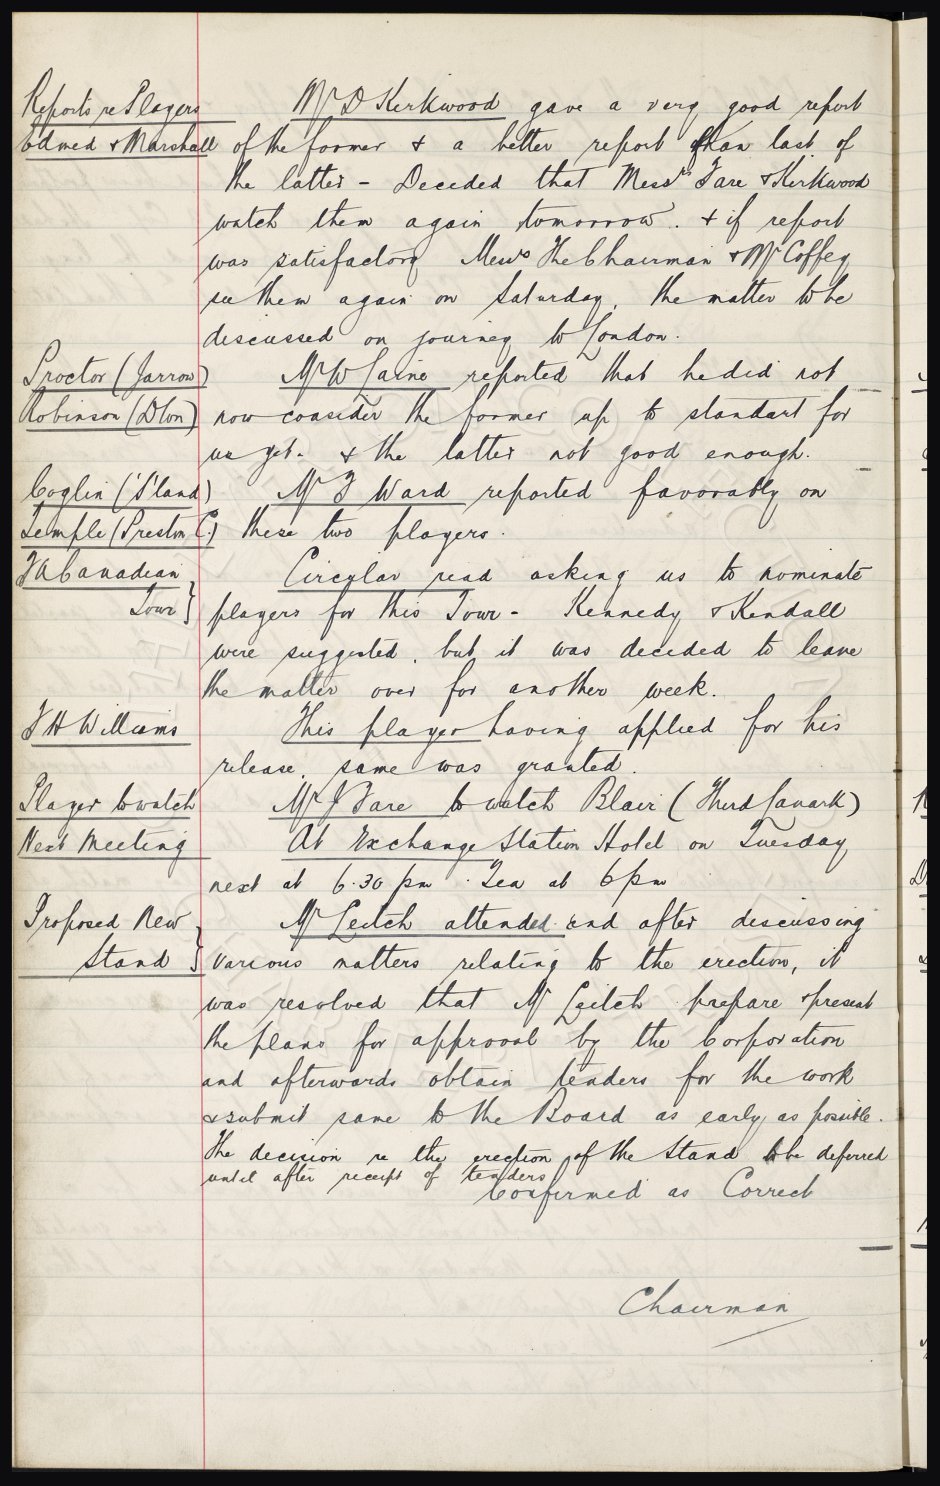 Reports re Players
Edmed & Marshall
Mr D Kirkwood gave a very good report
of the former & a better report than last of
the latter - Decided that Messrs Fare & Kirkwood
watch them again tomorrow. & if report
was satisfactory Messrs The Chairman & Mr Coffey
see them again on Saturday, the matter to be
discussed on journey to London.
Proctor (Jarrow)
Robinson (Dlon)
Mr W Caine reported that he did not
now consider the former up to standart for
us yet. & the latter not good enough.
Coglin (S'land)
Temple (Preston C.)
Mr F Ward reported favorably on
these two players.
FA Canadian
Tour }
Circular read asking us to nominate
players for this Tour - Kennedy & Kendall
were suggested, but it was decided to leave
the matter over for another week.
F H Williams
This player having applied for his
release, same was granted.
Player to watch
Mr J Fare to watch Blair (Third Lanark)
Next Meeting
At Exchange Station Hotel on Tuesday
next at 6.30 pm. Tea at 6 pm
Proposed New
Stand }
Mr Leitch attended and after discussing
various matters relating to the erection, it
was resolved that Mr Leitch prepare & present
the plans for approval by the Corporation
and afterwards obtain tenders for the work
& submit same to the Board as early as possible.
The decision re the erection of the Stand to be deferred
until after receipt of tenders
Confirmed as Correct
Chairman